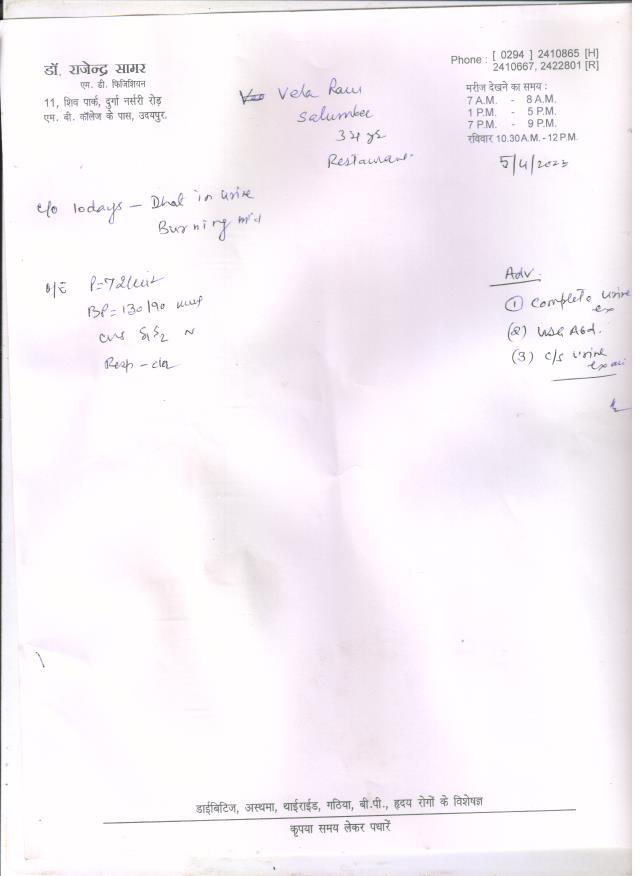 डॉ. राजेन्द्र सामर
एम. डी. फिजिशियन
11, शिव पार्क, दुर्गा नर्सरी रोड़
एम. बी. कॉलेज के पास, उदयपुर.
Phone : [ 0294 ] 2410865 [H]
2410667, 2422801 [R]
मरीज देखने का समय :
7 A.M. - 8 A.M.
1 P.M. - 5 P.M.
7 P.M. - 9 P.M.
रविवार 10.30 A.M. - 12 P.M.
Vela Ram
Salumber
yr
Restaurant
5/4/2023
c/o 10days - Dhat in urine
Burning
O/E P=72/min
BP=130/90
CVS S1S2 N
Resp - clear
Adv.
(1) Complete urine
ex
(2) USG Abd.
(3) c/s urine
exam
डाईबिटिज, अस्थमा, थाईराईड, गठिया, बी.पी., हृदय रोगों के विशेषज्ञ
कृपया समय लेकर पधारें